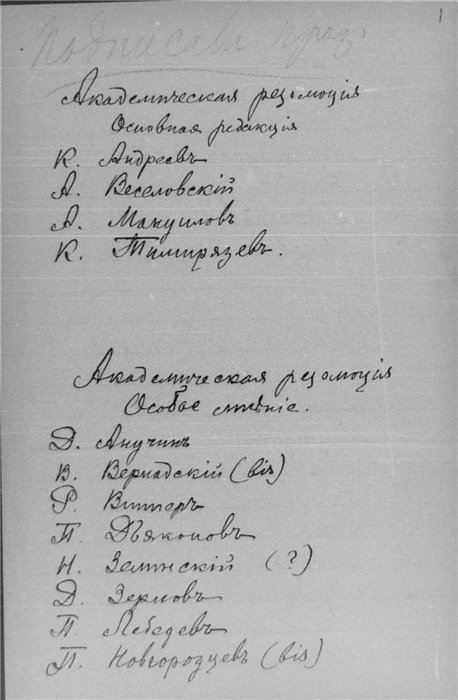 1
Подписали
Академическая резолюція
Основная редакція
К. Андреевъ
А. Веселовскій
А. Мануиловъ
К. Тимирязевъ.
Академическая резолюція
Особое мнѣніе.
Д. Анучинъ
В. Вернадскій (bis)
Р. Випперъ
П. Дьяконовъ
Н. Зелинскій (?)
Д. Зерновъ
П. Лебедевъ
П. Новгородцевъ (bis)